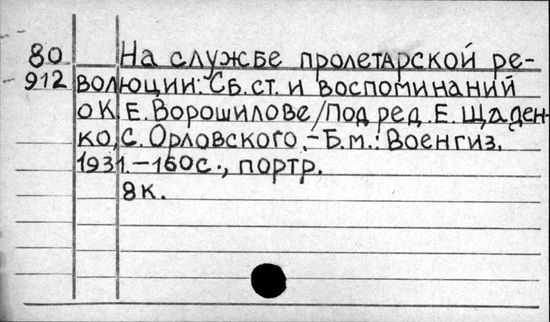 80 На службе пролетарской ре-
912 волюции: Сб. ст. и воспоминаний
о К. Е. Ворошилове/Под ред. Е. Щаден-
ко, С. Орловского.-Б.м.: Военгиз,
1931.-160с., портр.
8к.